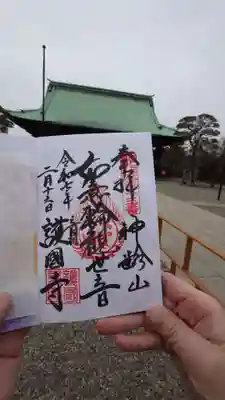 奉拝
神齢山
如意輪観世音
令和七年
二月十五日
護國寺